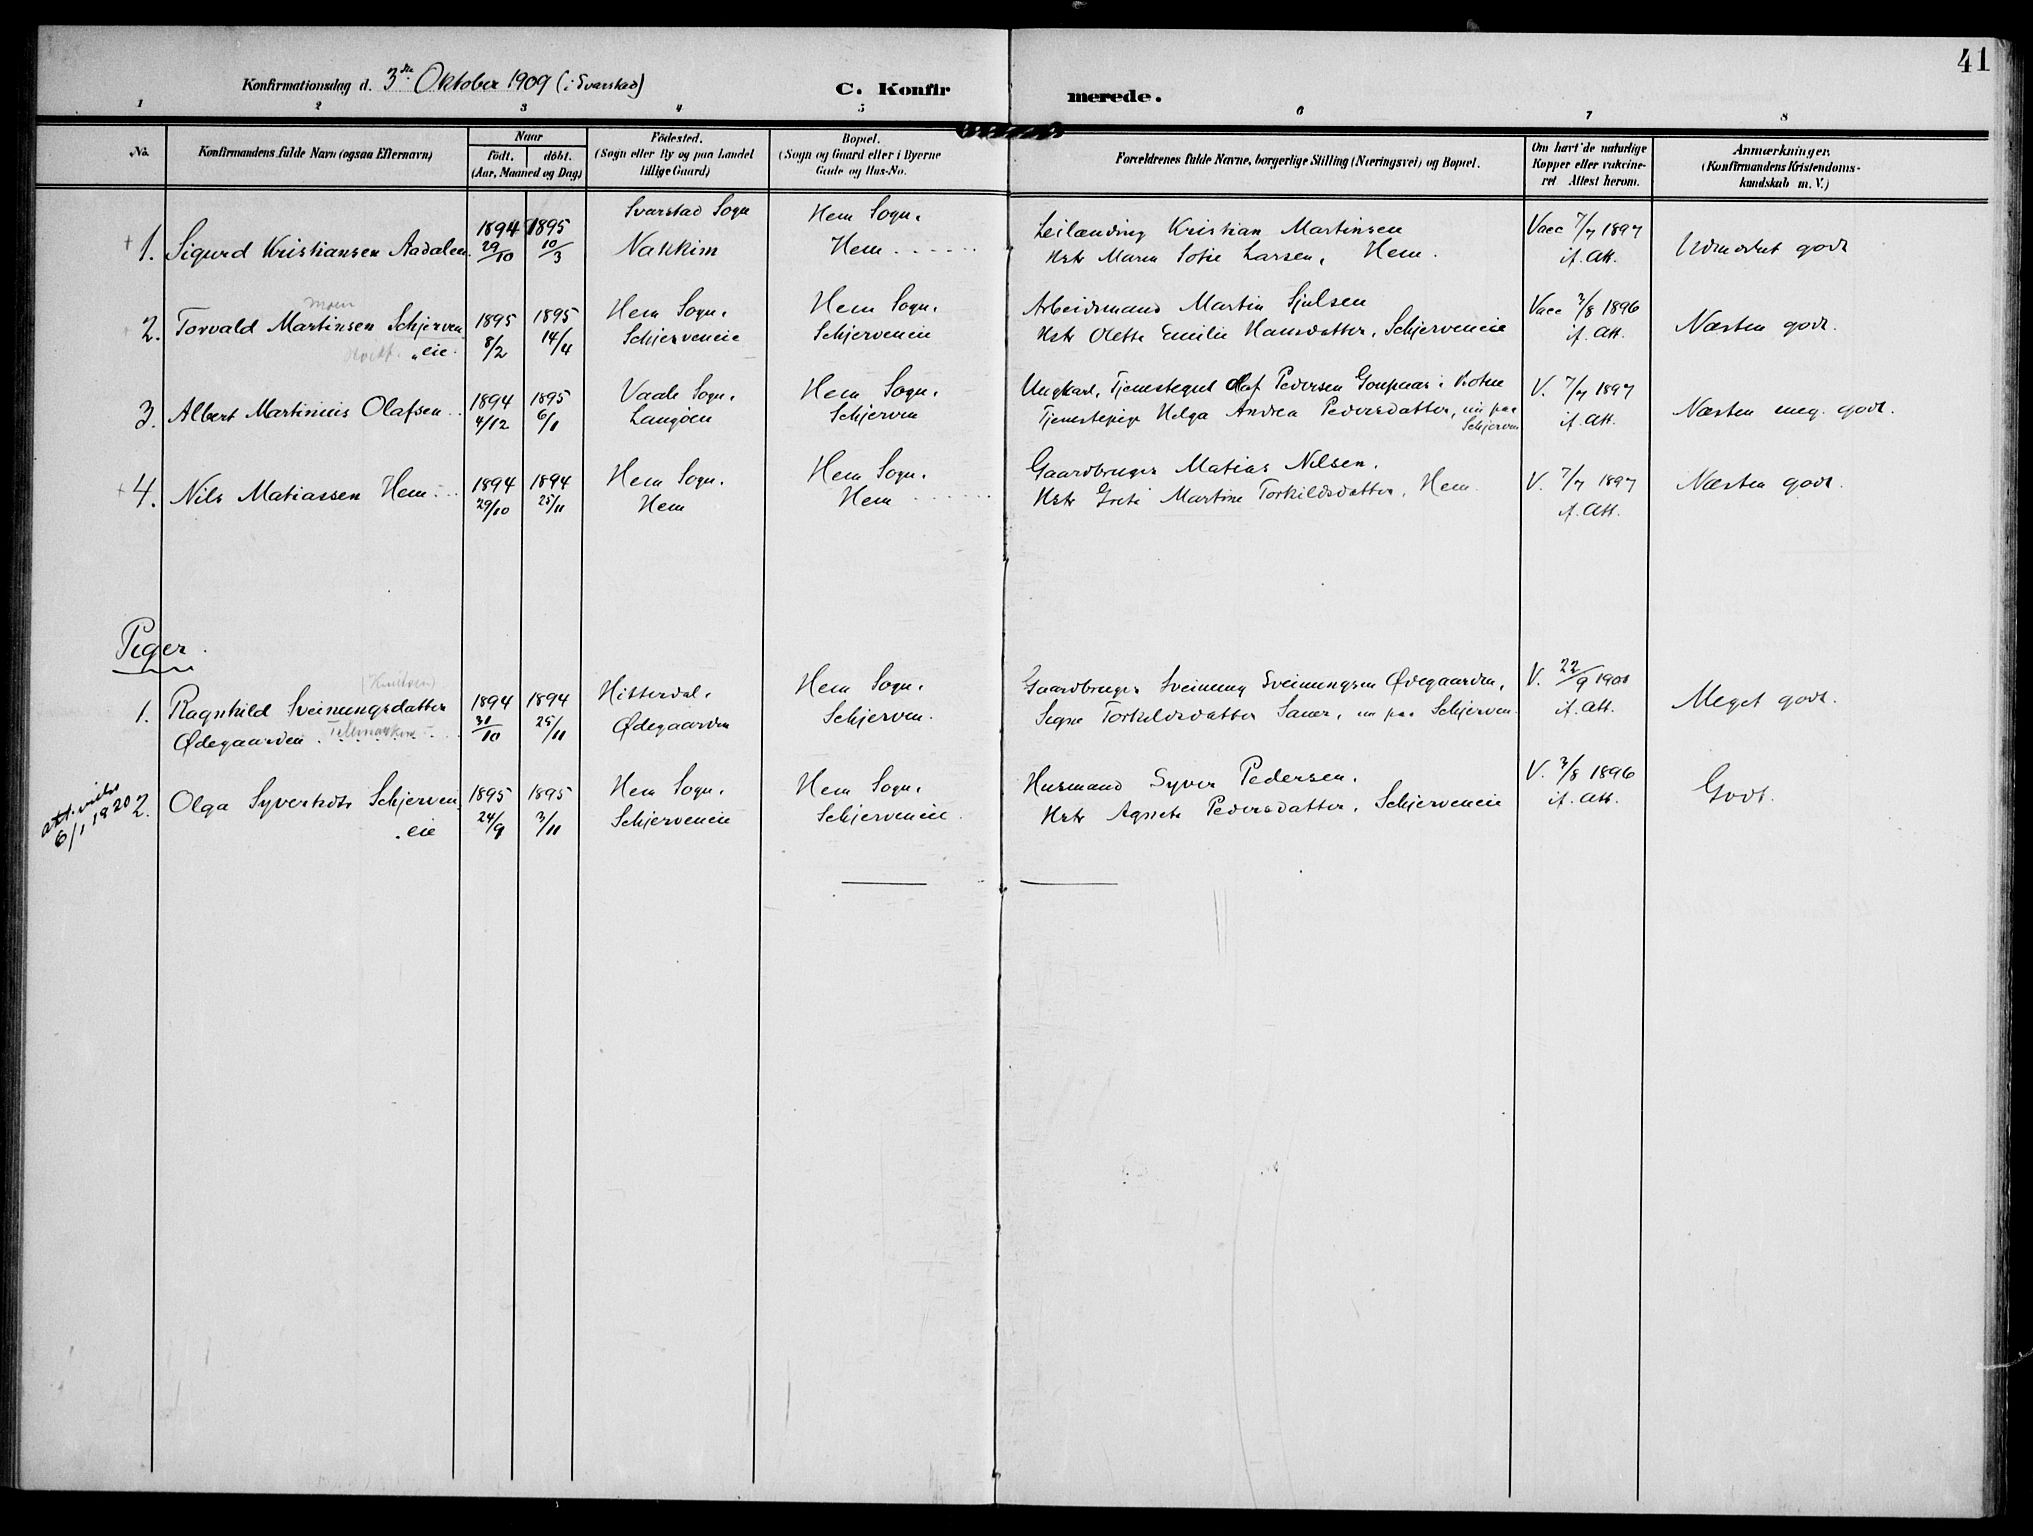 41
Konfirmationsdag d. 3die Oktober 1909 (i Svarstad)
C. Konfirmerede.
1 2 3 4 5 6 7 8
No.
Konfirmandens fulde Navn (ogsaa Efternavn)
Naar
født. døbt.
(Aar, Maaned og Dag)
Fødested.
(Sogn eller By og paa Landet
tillige Gaard)
Bopæl.
(Sogn og Gaard eller i Byerne
Gade og Hus-No.
Forældrenes fulde Navne, borgerlige Stilling (Næringsvei) og Bopæl.
Om havt de naturlige
Kopper eller vakcine-
ret Attest herom.
Anmærkninger.
(Konfirmandens Kristendoms-
kundskab m. V.)
+ 1. Sigurd Kristiansen Aadalen.
1894 29/10
1895 10/3
Svarstad Sogn
Nakkim
Hem Sogn.
Hem
Leilænding Kristian Martinsen
Hstr Maren Sofie Larsen, Hem.
Vacc 7/7 1897
if. Att.
Udmerket godt
2. Torvald Martinsen Schjerven
Moen
"eie.
1895 8/2
1895 14/4
Hem Sogn.
Schjerveneie
Hem Sogn.
Schjerveneie
Arbeidsmand Martin Sjulsen
Hstr Olette Emilie Hansdatter, Schjerveneie
Vacc 3/8 1896
if. Att.
Næsten godt.
3. Albert Martinius Olafsen
1894 4/12
1895 6/1
Vaale Sogn.
Langöen
Hem Sogn.
Schjerven
Ungkarl, Tjenestegut Olaf Pedersen i
Tjenestepige Helga Andrea Pedersdatter, nu paa
Schjerven
V. 7/7 1897
if. Att.
Næsten meg. godt.
+ 4. Nils Matiassen Hem
1894 29/10
1894 25/11
Hem Sogn.
Hem
Hem Sogn.
Hem
Gaardbruger Matias Nilsen.
Hstr Grete Martine Torkildsdatter, Hem.
V. 7/7 1897
if. Att.
Næsten godt.
Piger.
1. Ragnhild Sveinungsdatter
Ødegaarden. Telemarken
1894 30/10
1894 25/11
Hitterdal.
Ødegaarden
Hem Sogn.
Schjerven.
Gaardbruger Sveinung Sveinungsen Ødegaarden,
Signe Torkildsdatter Sauer, nu paa Schjerven.
V. 22/9 1900
if. Att.
Meget godt.
att. vidst
6/1 1920
2. Olga Syvertsdtr Schjerven
"eie
1895 24/9
1895 3/11
Hem Sogn.
Schjerveneie
Hem Sogn.
Schjerveneie.
Husmand Syver Pedersen.
Hstr Agnete Pedersdatter. Schjerveneie
V. 3/8 1896
if. Att.
Godt.